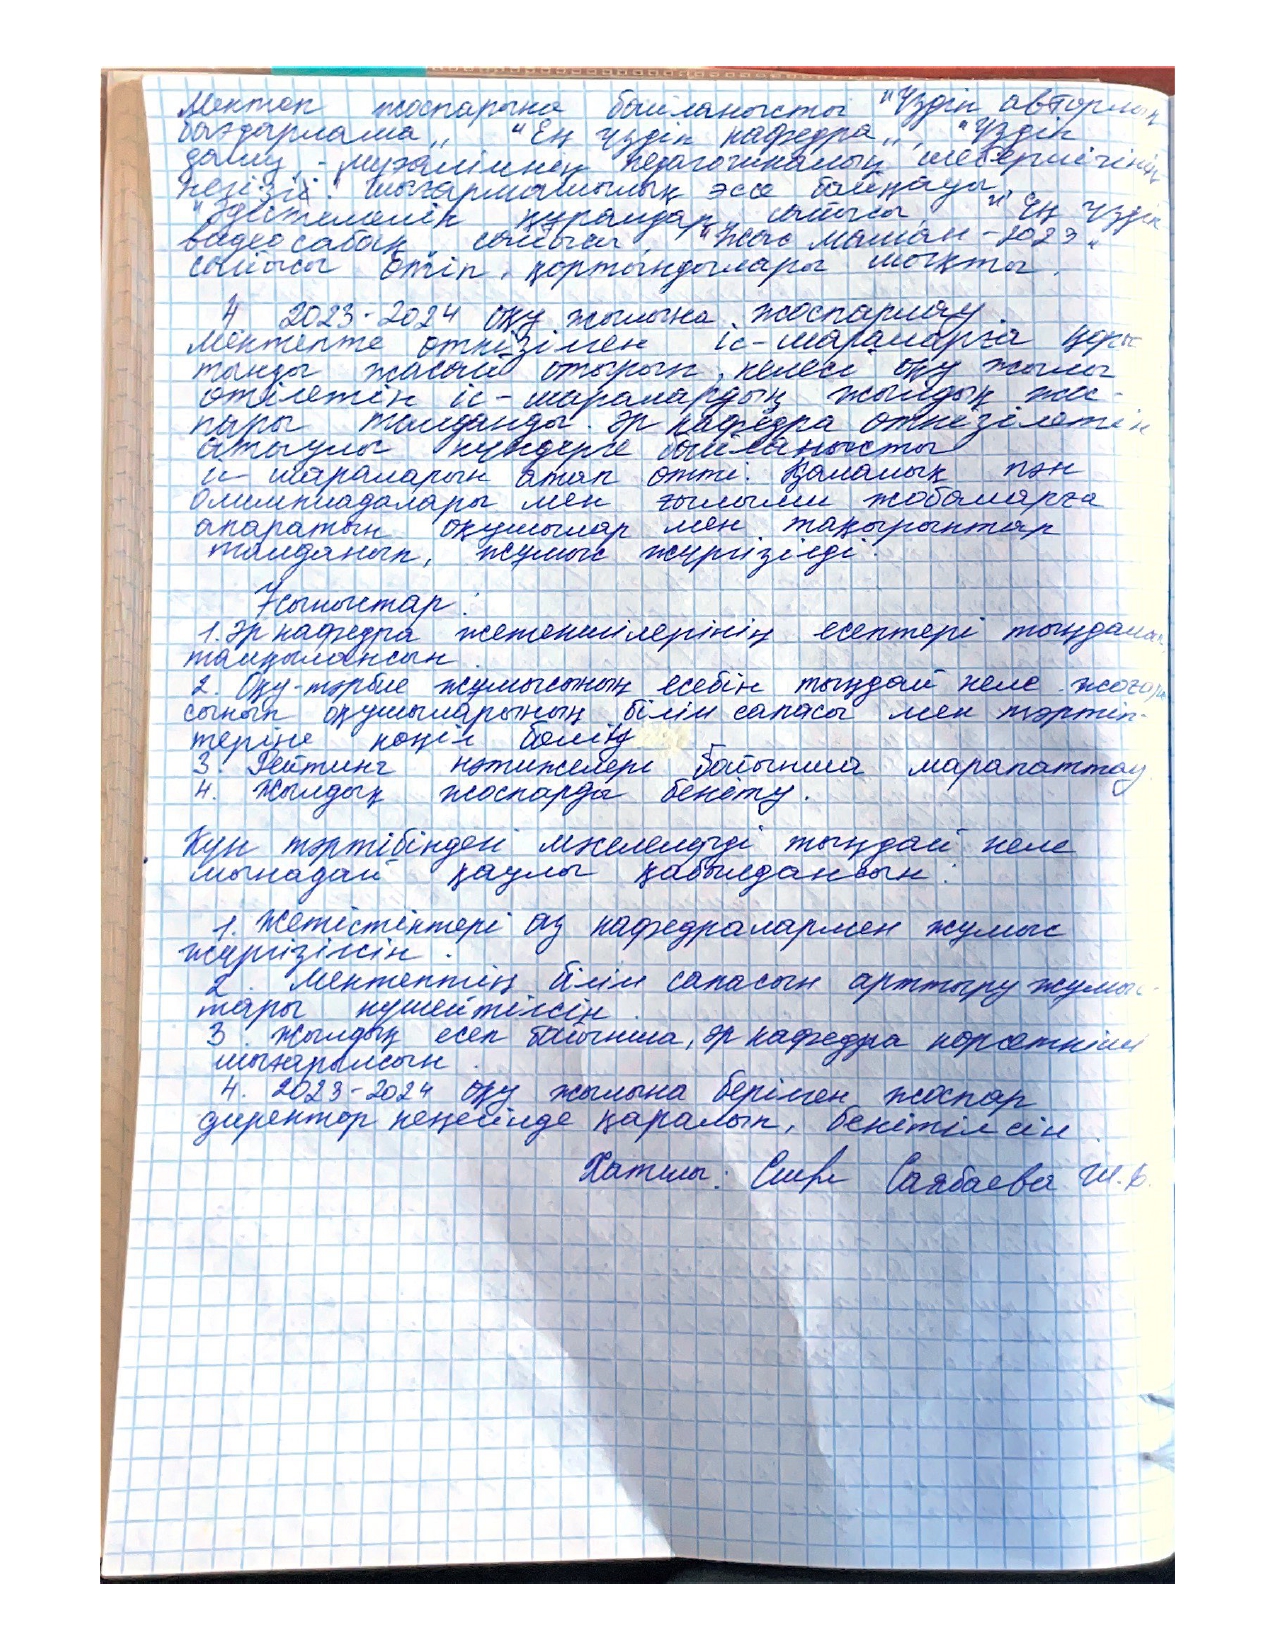 Мектеп жоспарына байланысты "Үздік авторлық
бағдарлама", "Ең үздік кафедра", "Үздік
даму - мұғалімнің педагогикалық шеберлігінің
негізгі" шығармашылық эссе байқауы,
"Әдістемелік құралдар" сайысы, "Ең үздік
видеосабақ" сайысы, "Жас маман - 2023"
сайысы өтіп, қортындылары шықты.
4 2023-2024 оқу жылына жоспарлау
Мектепте өткізілген іс-шараларға қоры
тынды жасай отырып, келесі оқу жылы
өтілетін іс-шаралардың жылдық жос-
пары талданды. Әр кафедра өткізілетін
атаулы күндерге байланысты
іс-шараларын атап өтті. Қалалық пән
олимпиадалары мен ғылыми жобаларға
апаратын оқушылар мен тақырыптар
талданып, жұмыс жүргізілді.
Ұсыныстар:
1. Әр кафедра жетекшілерінің есептері тыңдалып,
талқылансын.
2. Оқу-тәрбие жұмысының есебін тыңдай келе жоғары
сынып оқушыларының білім сапасы мен тәртіп-
теріне көңіл бөлің
3. Рейтинг нәтижелері бойынша марапаттау.
4. Жылдық жоспарды бекіту.
Күн тәртібіндегі мәселелерді тыңдай келе
мынадай қаулы қабылдансын:
1. Жетістіктері аз кафедралармен жұмыс
жүргізілсін.
2. Мектептің білім сапасын арттыру жұмыс-
тары күшейтілсін.
3. Жылдық есеп бойынша, әр кафедра көрсеткіші
шығарылсын.
4. 2023-2024 оқу жылына берілген жоспар
директор кеңесінде қаралып, бекітілсін.
Хатшы: Саябаева Ш.Б.